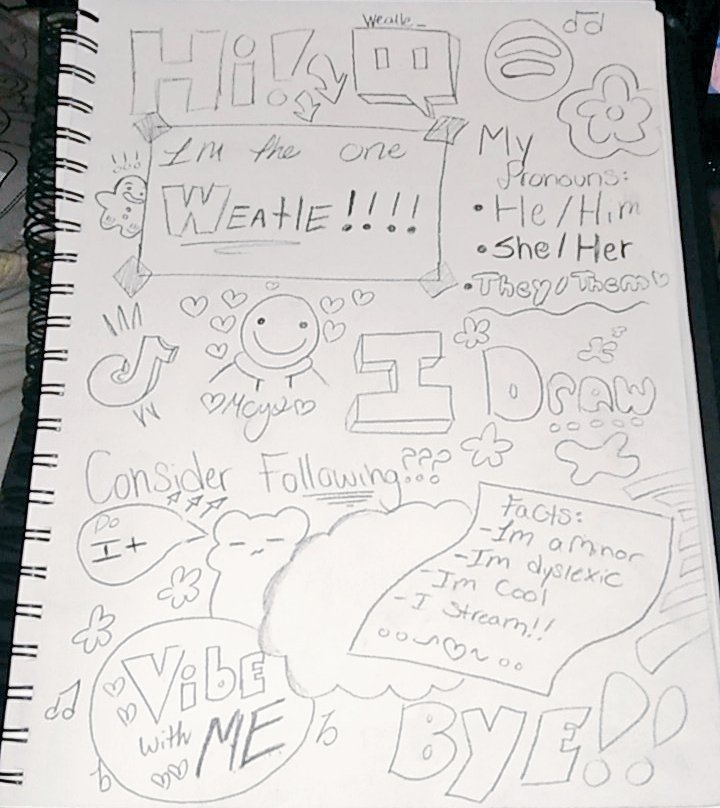 Weatle_
Hi!
I'm the one
WEATLE!!!!
My
Pronouns:
• He/Him
• She/Her
• They/Them
I Draw
Consider Following???
Do
It
Facts:
- Im a minor
- Im dyslexic
- Im Cool
- I Stream!!
Vibe
with ME
BYE!!